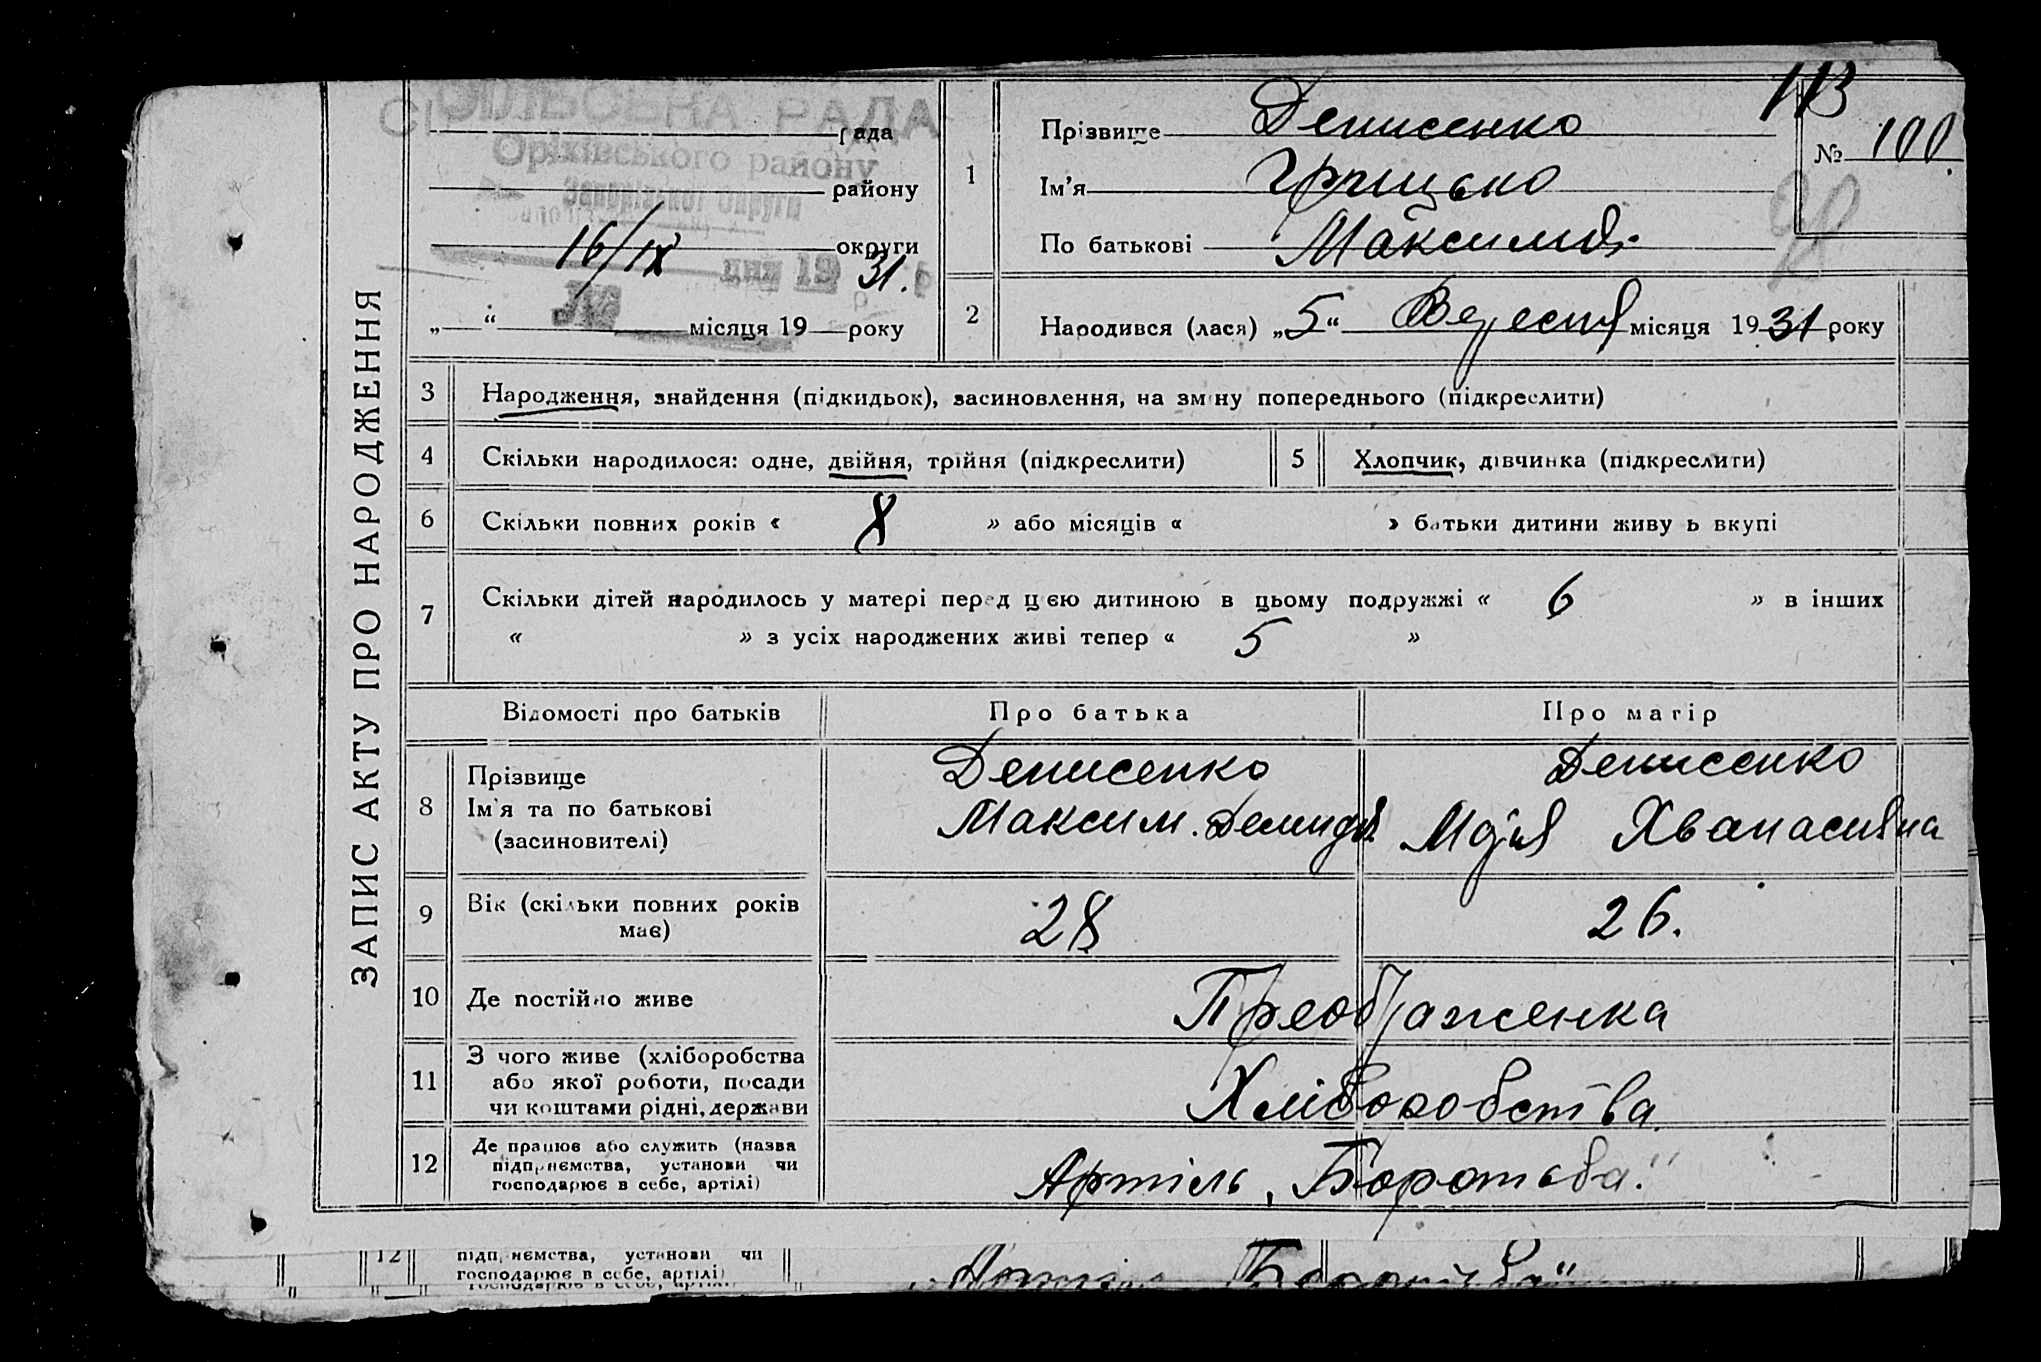 ЗАПИС АКТУ ПРО НАРОДЖЕННЯ
СІЛЬСЬКА РАДА
рада
Оріхівського району
району
Запорізької Округи
округи
16/IX дня 19 31. р
№
„ “ місяця 19 року
113
№ 100
90
1 Прізвище Денисенко
Ім'я Грицько
По батькові Максимов.
2 Народився (лася) „5“ Вересня місяця 1931 року
3 Народження, знайдення (підкидьок), засиновлення, на зміну попереднього (підкреслити)
4 Скільки народилося: одне, двійня, трійня (підкреслити) 5 Хлопчик, дівчинка (підкреслити)
6 Скільки повних років « 8 » або місяців « » батьки дитини живуть вкупі
7 Скільки дітей народилось у матері перед цією дитиною в цьому подружжі « 6 » в інших
« » з усіх народжених живі тепер « 5 »
Відомості про батьків Про батька Про матір
8 Прізвище Денисенко Денисенко
Ім'я та по батькові Максим. Демидов. Марія Хванасивна
(засиновителі)
9 Вік (скільки повних років має) 28 26.
10 Де постійно живе Преображенка
11 З чого живе (хліборобства
або якої роботи, посади
чи коштами рідні, держави Хліборобства.
12 Де працює або служить (назва
підприємства, установи чи
господарює в себе, артілі) Артіль „Боротьба"
12 підприємства, установи чи
господарює в себе, артілі)